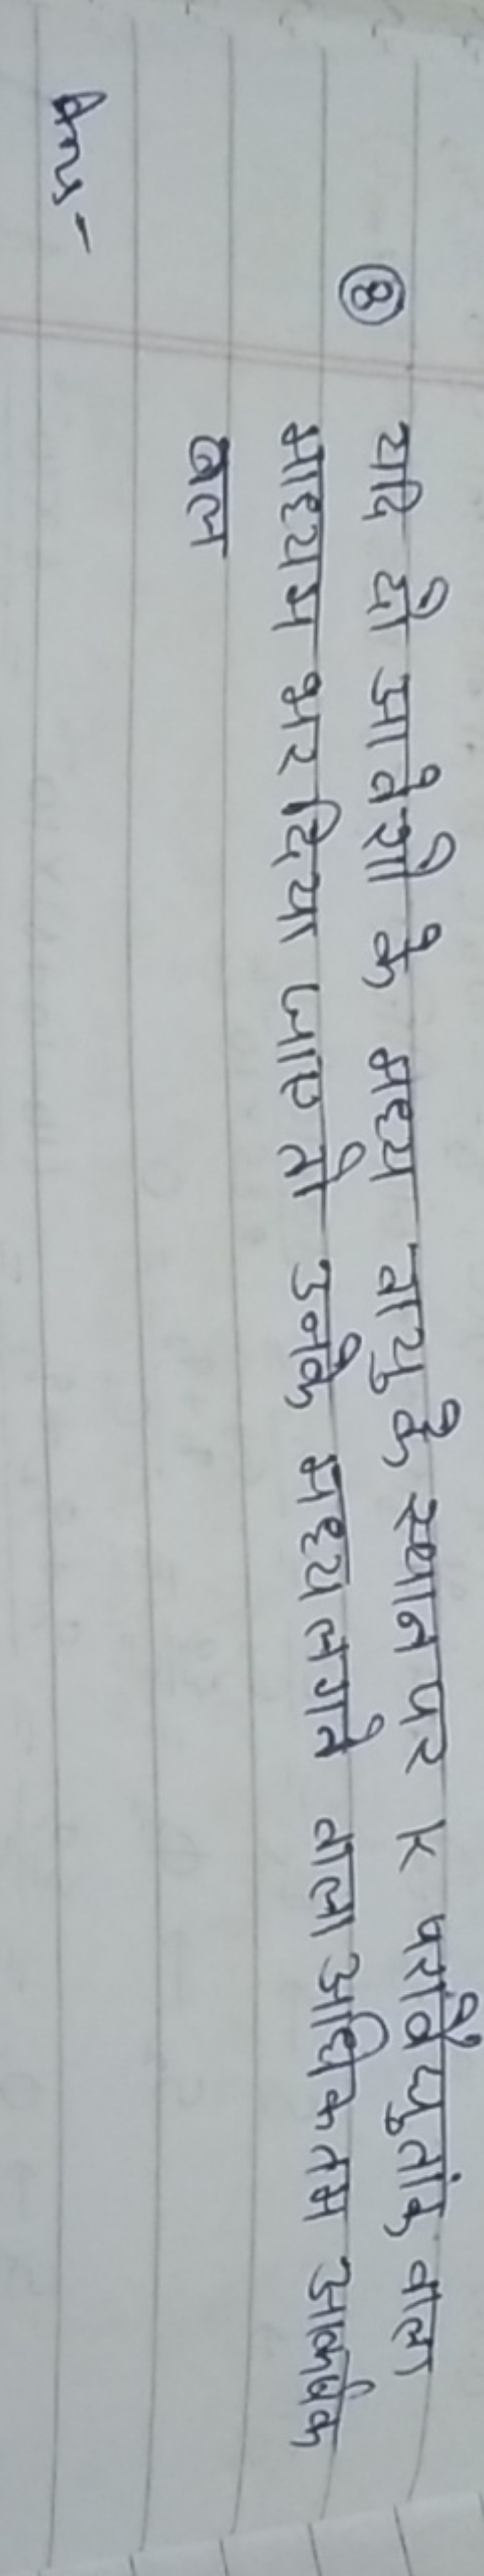 ⑧ यदि दो आवेशों के मध्य वायु के स्थान पर K परावैद्युतांक वाला
माध्यम भर दिया जाए तो उनके मध्य लगने वाला अधिकतम आकर्षक
बल
Ans-